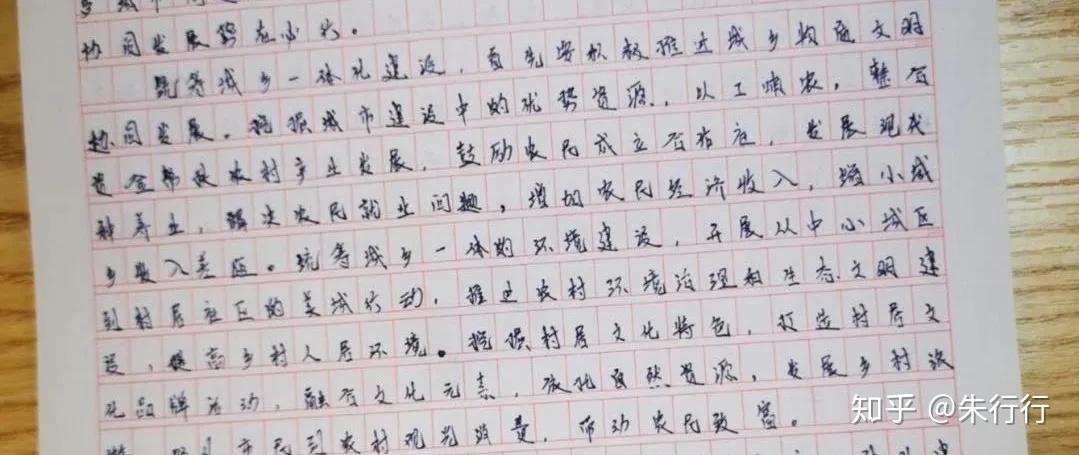 协同发展势在必行。
统筹城乡一体化建设，首先要积极推进城乡物质文明
协同发展。挖掘城市建设中的优势资源，以工哺农，整合
资金帮扶农村产业发展，鼓励农民成立合作社，发展现代
种养业，解决农民就业问题，增加农民经济收入，缩小城
乡收入差距。统筹城乡一体的环境建设，开展从中小城区
到村居社区的美城行动，推进农村环境治理和生态文明建
设，提高乡村人居环境。挖掘村居文化特色，打造村居文
化品牌活动，融合文化元素，依托自然资源，发展乡村旅
游，市民到农村观光消费，带动农民致富。
知乎 @朱行行